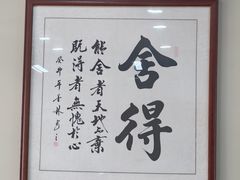 舍得
能舍者天地不棄
既得者無愧於心
癸卯年